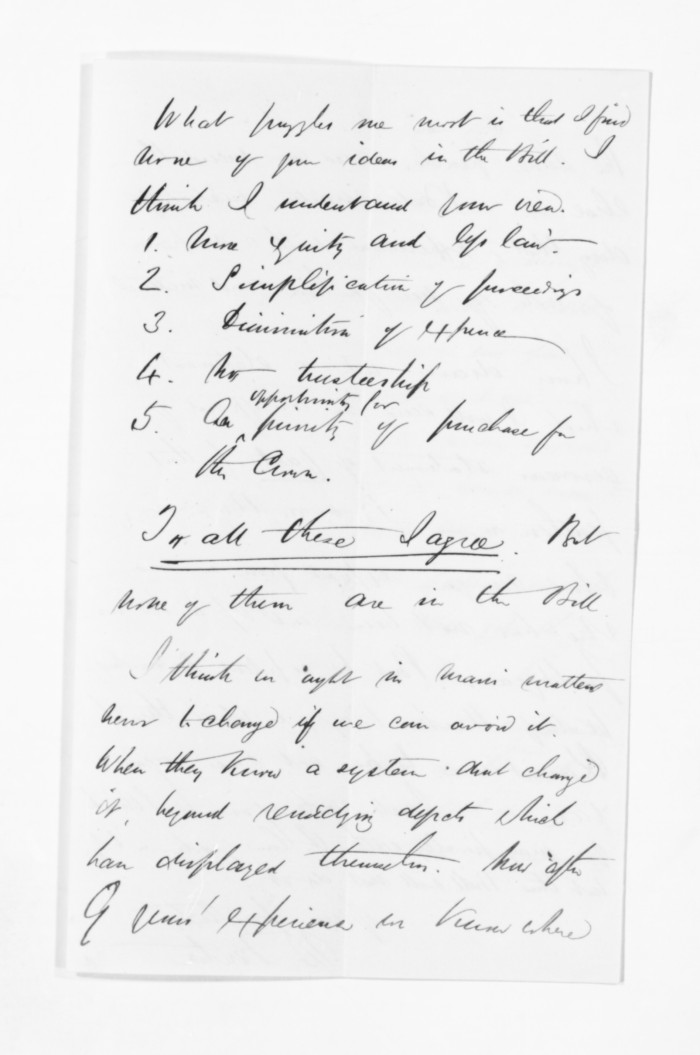 What puzzles me most is that I find
none of your ideas in the Bill. I
think I understand your view.
1. More equity and less law.
2. Simplification of proceedings
3. Diminution of expence
4. No trusteeship
opportunity for
5. An priority of purchase for
the Crown.
To all these I agree. But
none of them are in the Bill
I think we ought in Maori matters
never to change if we can avoid it.
When they know a system don't change
it, beyond remedying defects which
have displayed themselves. Now after
9 years' experience we know where